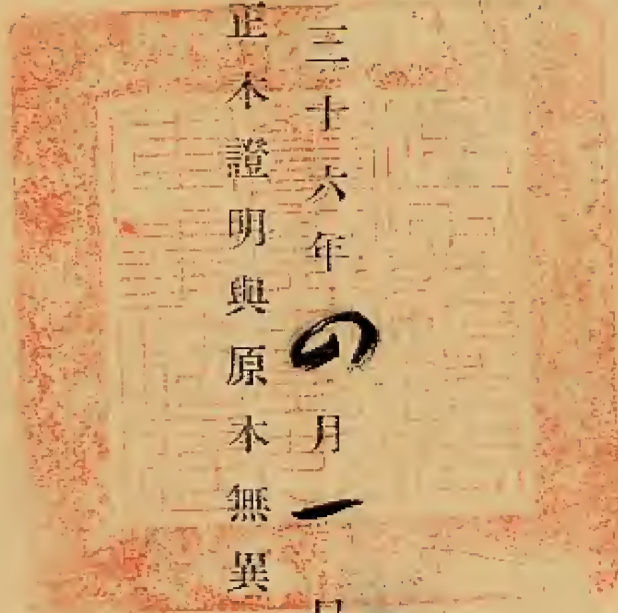 三十六年四月一日
正本證明與原本無異